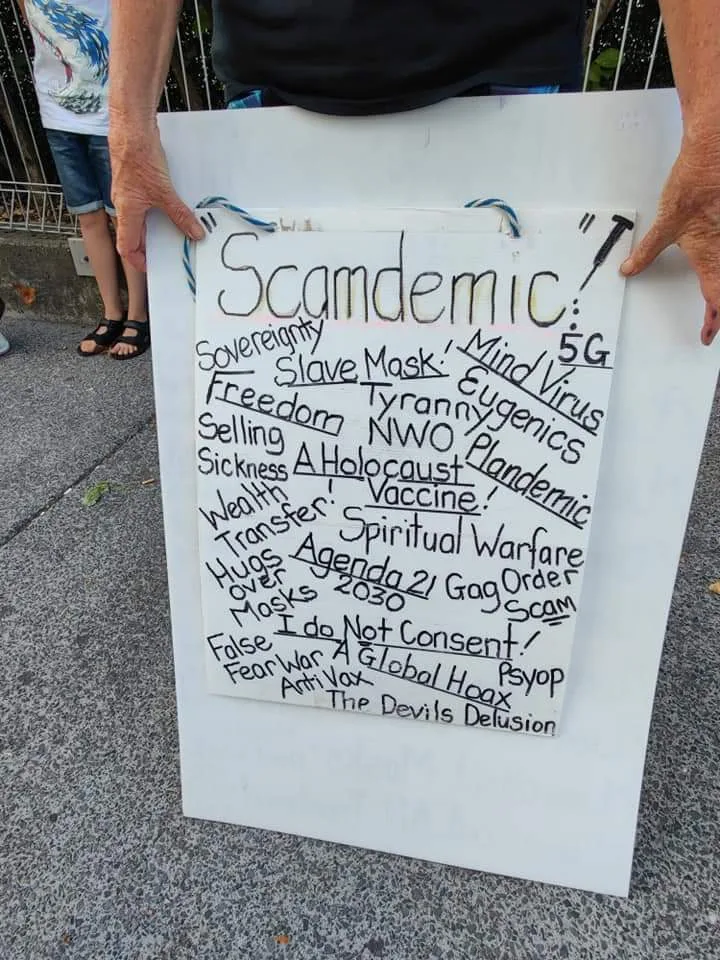 "Scamdemic!"
5G
Sovereignty
Slave Mask!
Mind Virus
Freedom
Tyranny
Eugenics
Selling
Sickness
NWO
Plandemic
A Holocaust
Vaccine!
Wealth
Transfer!
Spiritual Warfare
Hugs
over
Masks
Agenda 21
2030
Gag Order
Scam
I do Not Consent!
False
Fear War
A Global Hoax
Psyop
Anti Vax
The Devils Delusion